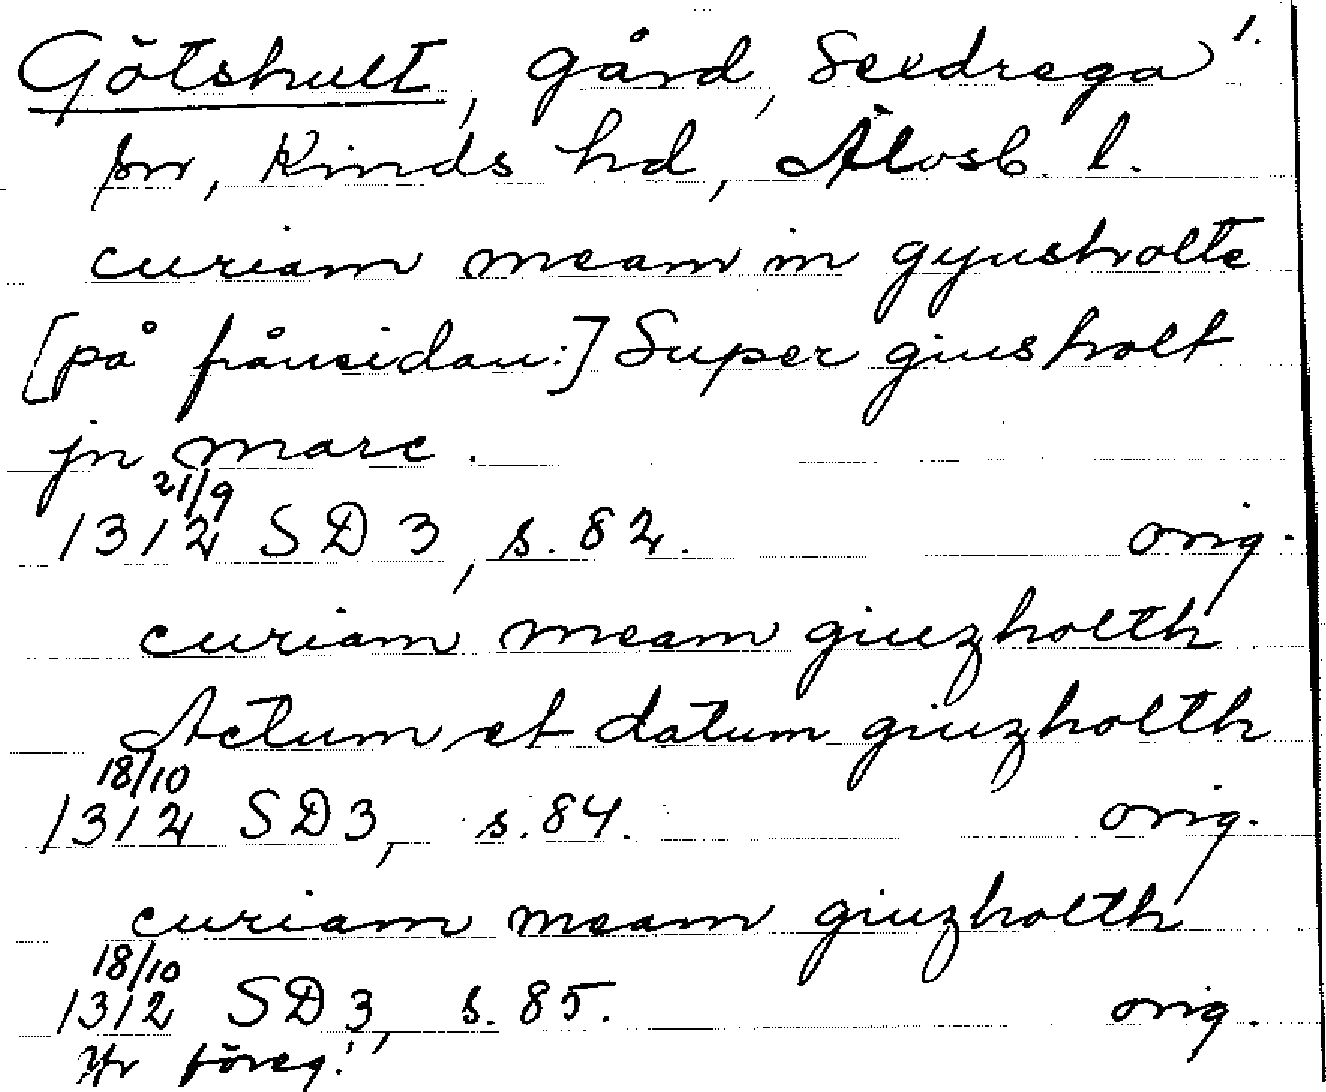 Götshult, gård, Sexdrega 1.
sn, Kinds hd, Älvsb. l.
curiam meam in gyusholte
[på frånsidan:] Super giusholt
jn marc.
21/9
1312 SD 3, s. 82. orig.
curiam meam giuzholth
Actum et datum giuzholth
18/10
1312 SD 3, s. 84. orig.
curiam meam giuzholth
18/10
1312 SD 3, s. 85. orig.
Jfr föreg.!